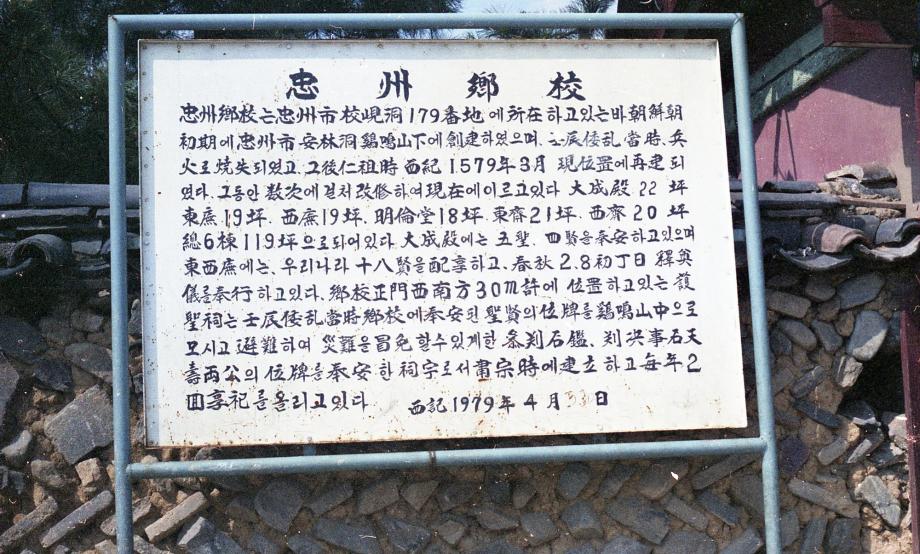 忠州鄕校
忠州鄕校는 忠州市 校峴洞 179番地에 所在하고 있는바 朝鮮朝
初期에 忠州市 安林洞 鷄鳴山下에 創建하였으며, 壬辰倭乱 當時, 兵
火로 焼失되였고, 그後 仁祖時 西紀 1.579年 3月 現位置에 再建되
였다. 그동안 数次에 걸처 改修하여 現在에 이르고있다 大成殿 22坪
東廡 19坪. 西廡 19坪. 明倫堂 18坪. 東齊 21坪. 西齊 20坪
總6棟 119坪으로 되어있다. 大成殿에는 五聖, 四賢을 奉安하고있으며
東西廡에는, 우리나라 十八賢을 配享하고, 春秋 2.8初丁日 釋奥
儀를 奉行하고있다. 鄕校正門西南方 30m許에 位置하고있는 護
聖祠는 壬辰倭乱當時 鄕校에 奉安된 聖賢의 位牌를 鷄鳴山中으로
모시고 避難하여 災難을 冒免할수있게한 判石鑑, 判 事石天
壽両公의 位牌를 奉安한 祠宇로서 肅宗時에 建立하고 每年2
回享祀를 올리고있다 西記 1979年 4月 日